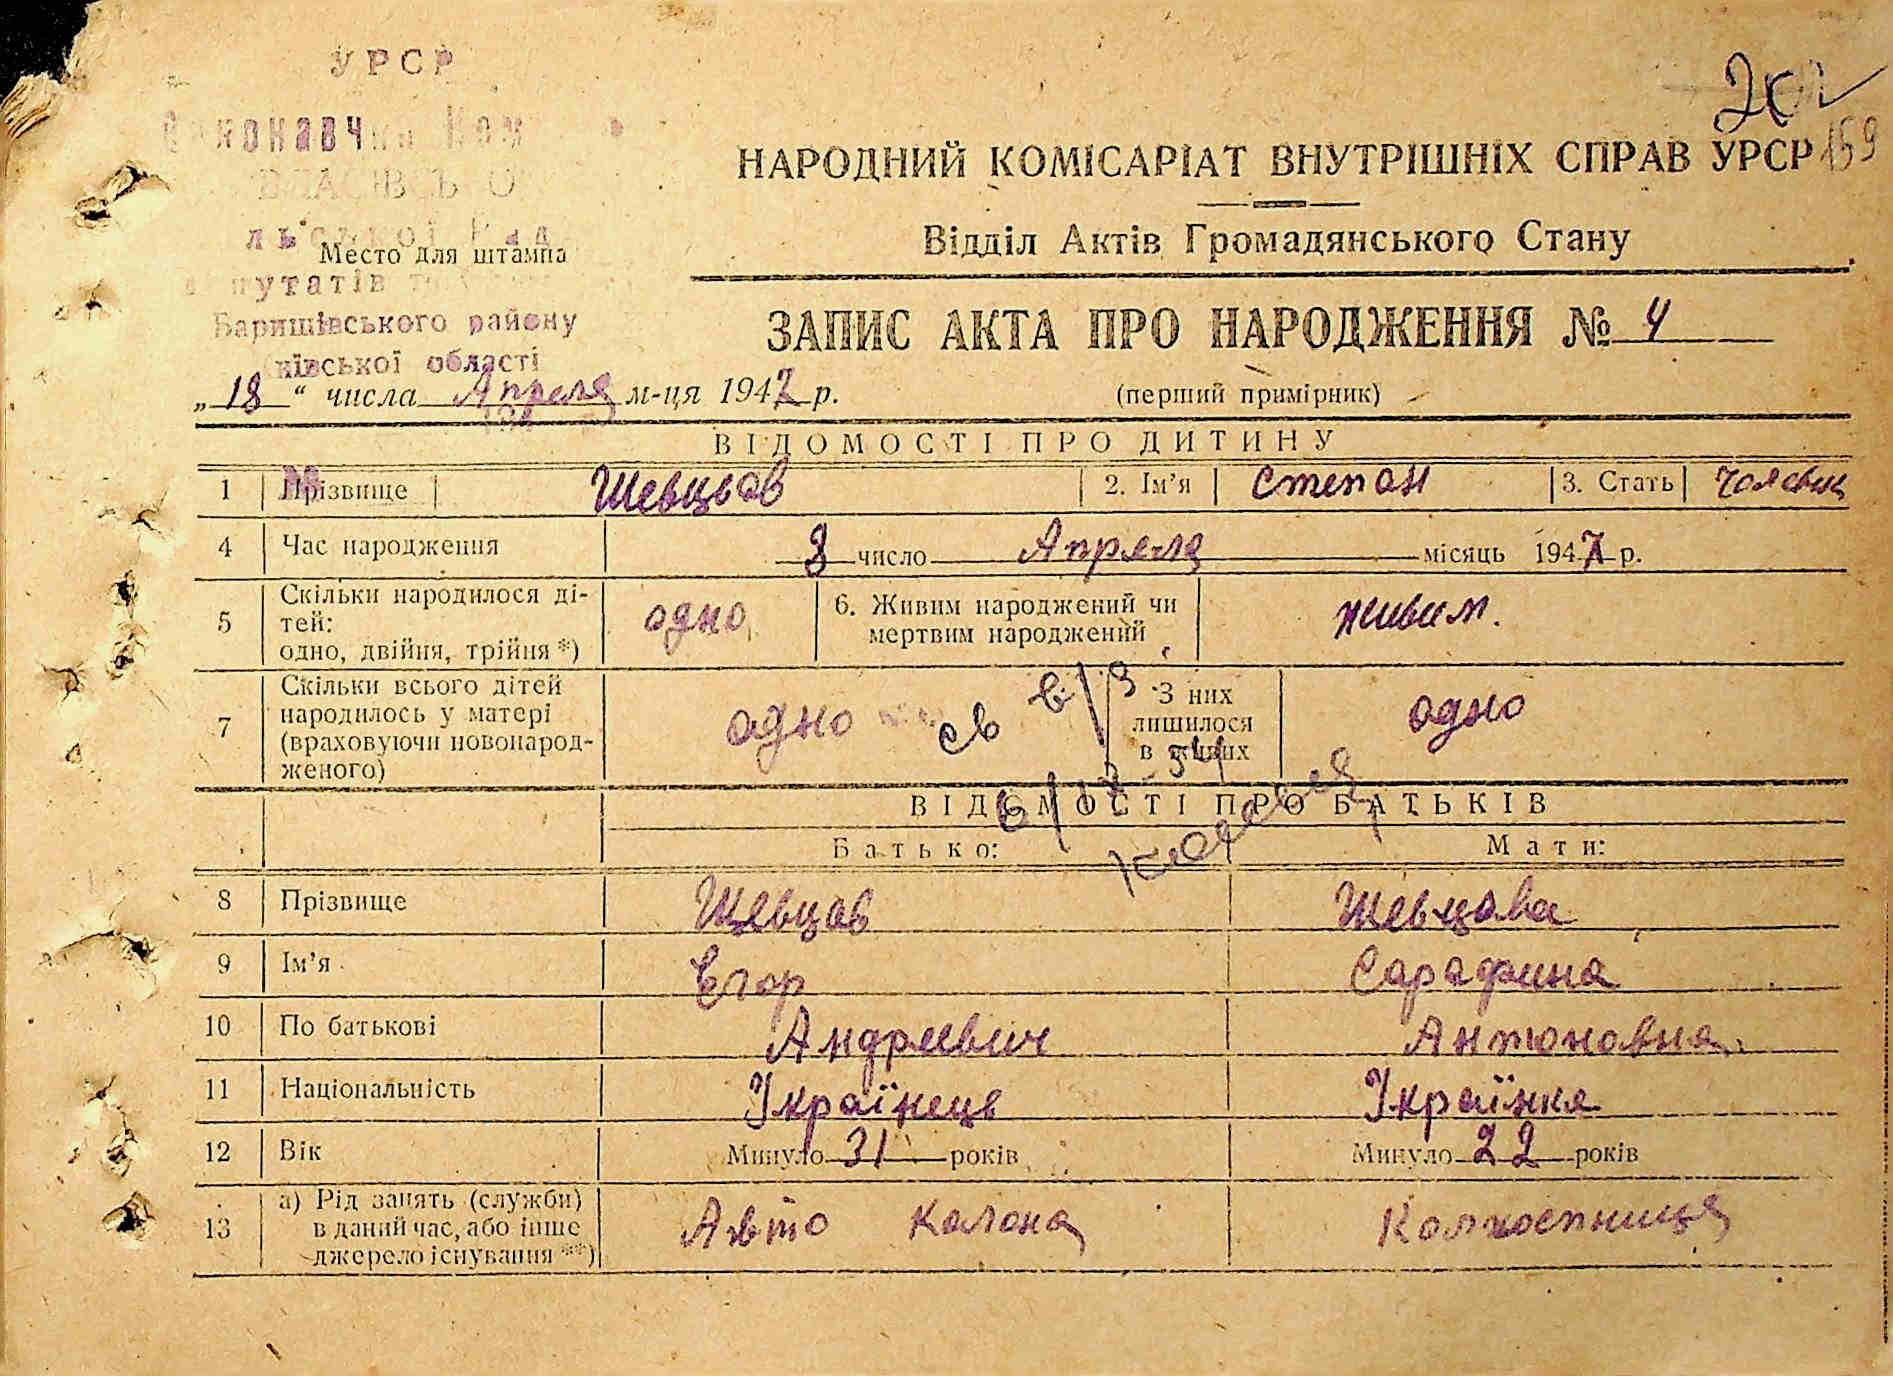 УРСР
159
НАРОДНИЙ КОМІСАРІАТ ВНУТРІШНІХ СПРАВ УРСР
Відділ Актів Громадянського Стану
Место для штампа
Баришівського району
області
ЗАПИС АКТА ПРО НАРОДЖЕННЯ № 4
„18“ числа Апреля м-ця 1947 р. (перший примірник)
ВІДОМОСТІ ПРО ДИТИНУ
1 Прізвище Шевцов 2. Ім’я Степан 3. Стать
4 Час народження 8 число Апреля місяць 1947 р.
5 Скільки народилося ді-
тей:
одно, двійня, трійня *) одно 6. Живим народжений чи
мертвим народжений живим.
7 Скільки всього дітей
народилось у матері
(враховуючи новонарод-
женого) одно З них
лишилося
в живих одно
св в/з
ВІДОМОСТІ ПРО БАТЬКІВ
Батько: Мати:
8 Прізвище Шевцов Шевцова
9 Ім’я Егор Сарафина
10 По батькові Андреевич Антоновна
11 Національність Українець Українка
12 Вік Минуло 31 років Минуло 22 років
13 а) Рід занять (служби)
в даний час, або інше
джерело існування **) Авто Калона Колхоспниця